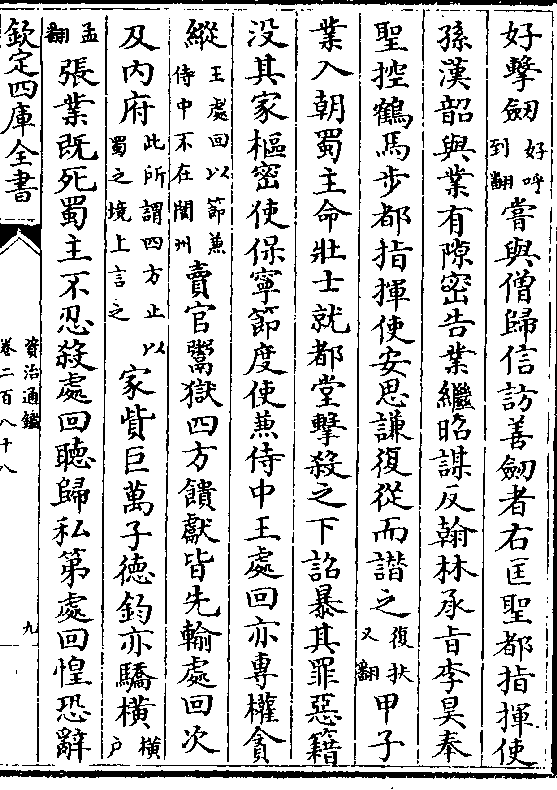 好擊劔好呼到翻嘗與僧歸信訪善劔者右匡聖都指揮使
孫漢韶與業有隙密告業繼昭謀反翰林承旨李昊奉
聖控鶴馬步都指揮使安思謙復從而譖之復扶又翻甲子
業入朝蜀主命壯士就都堂擊殺之下詔暴其罪惡籍
没其家樞密使保寧節度使兼侍中王處回亦專權貪
縱王處回以節兼侍中不在閬州賣官鬻獄四方饋獻皆先輸處回次
及内府此所謂四方止以蜀之境上言之家貲巨萬子德鈞亦驕橫橫户
孟翻張業既死蜀主不忍殺處回聽歸私第處回惶恐辭
欽定四庫全書
資治通鑑
卷二百八十八
九